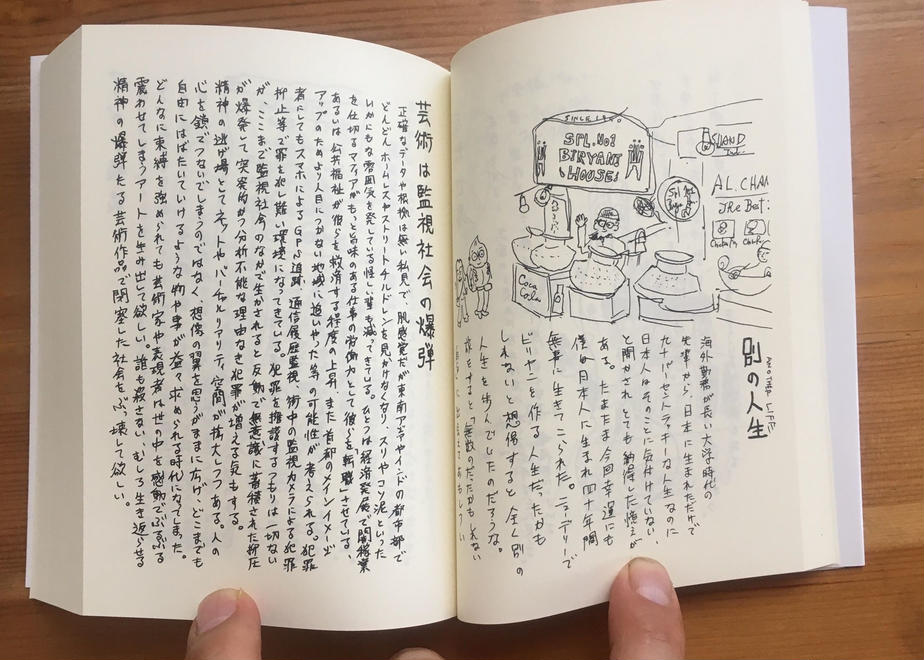 SINCE 19
SPL. No1
BIRYANI
HOUSE!
Coca
Cola
AL. CHAN
別の人生
海外勤務が長い大学時代の
先輩から、日本に生まれただけで
九十パーセントラッキーな人生なのに
日本人はそのことに気付けていない
と聞かされとても納得した憶えが
ある。たまたま今回幸運にも
僕は日本人に生まれ四十年間
無事に生きてこられた。ニューデリーで
ビリヤニを作る人生だったかも
しれないと想像すると全く別の
人生を歩んでいたのだろうな。
芸術は監視社会の爆弾
正確なデータや根拠は無い私見で、肌感覚だが東南アジアやインドの都市部で
どんどんホームレスやストリートチルドレンを見かけなくなり、スリやコソ泥といった
いかにもな雰囲気を発している怪しい輩も減ってきている。ひとつは経済発展で闇稼業
を仕切るマフィアがもっと旨味のある仕事の労働力として彼らを「転職」させている、
あるいは公共福祉が彼らを救済する程度の上昇、また首都のメインイメージ
アップのためより人目につかない地域に追いやった等の可能性が考えられる。犯罪
者にしてもスマホによるGPS追跡、通信履歴監視、街中の監視カメラによる犯罪
抑止等で罪を犯し難い環境になってきている。犯罪を擁護するつもりは一切ない
が、ここまで監視社会のなかで生かされると反動で無意識に蓄積された抑圧
が爆発して突発的かつ分析不能な理由なき犯罪が増える気もする。
精神の逃げ場としてネットやバーチャルリアリティ空間が拡大しつつある。人の
心を鎖でつないでしまうのではなく、想像の翼を思うがままに広げ、どこまでも
自由にはばたいていけるような物や事が益々求められる時代になってしまった。
どんなに束縛を強められても芸術家や表現者は世の中を感動でぶるぶる
震わせてしまうアートを生み出して欲しい。誰も殺さない、むしろ生き返らせる
精神の爆弾たる芸術作品で閉塞した社会をぶっ壊して欲しい。